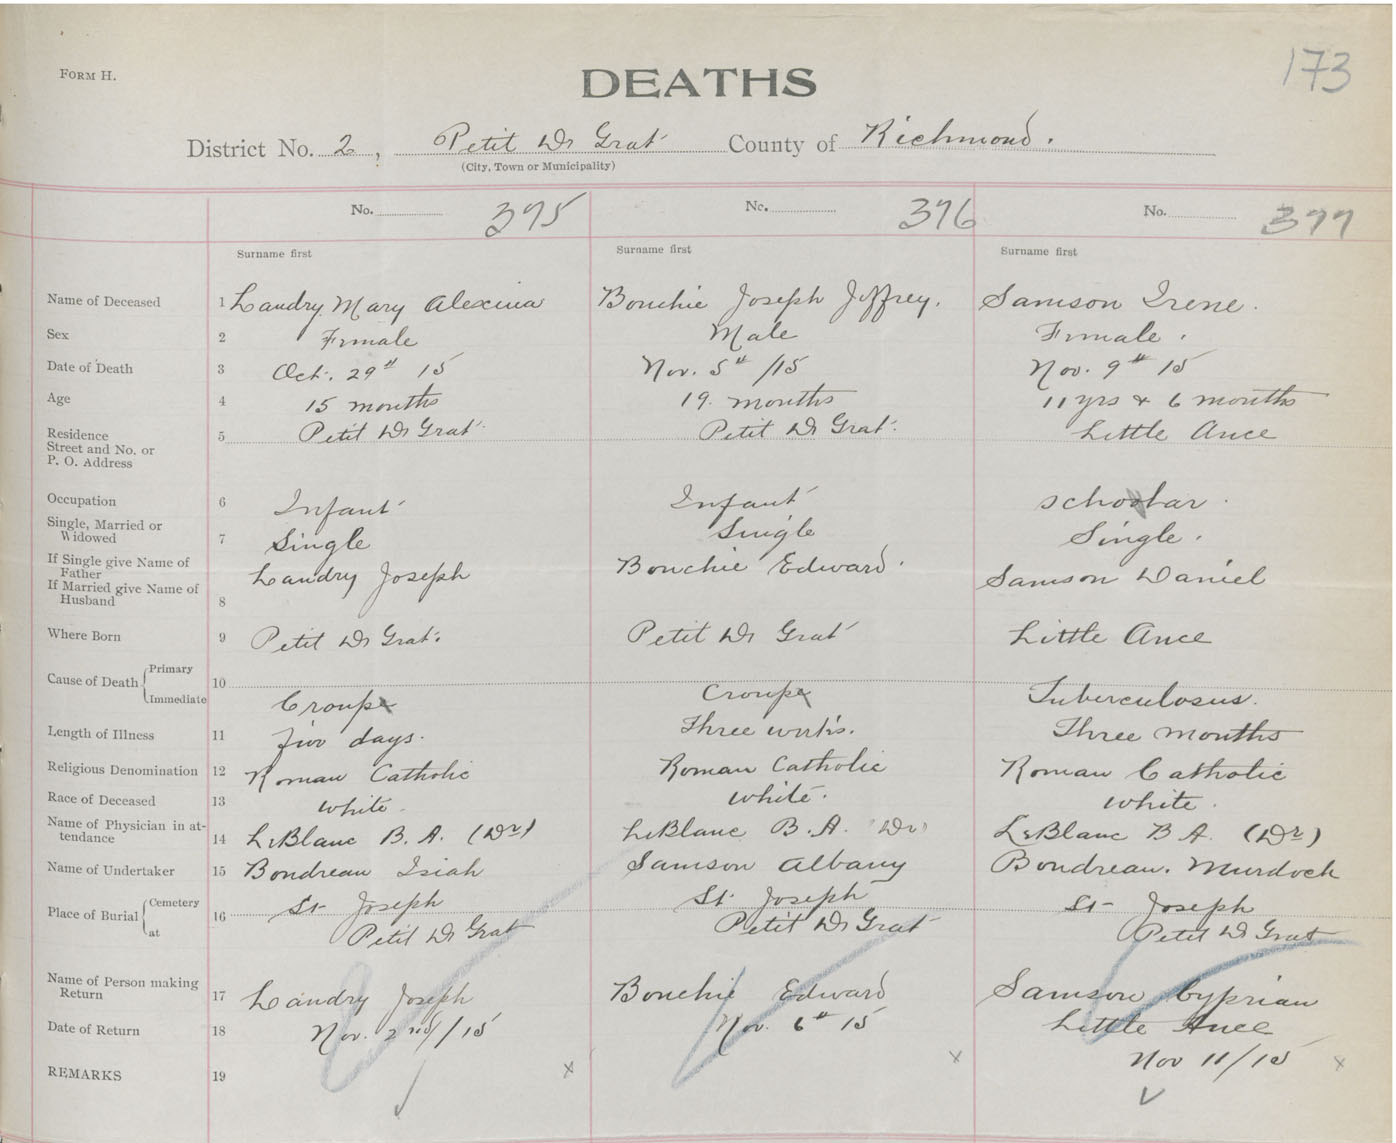 FORM H.
DEATHS
173
District No. 2, Petit De Grat County of Richmond.
(City, Town or Municipality)
No. 375 No. 376 No. 377
Surname first Surname first Surname first
Name of Deceased 1 Landry Mary Alexina Bouchie Joseph Jeffrey. Samson Irene.
Sex 2 Female Male Female.
Date of Death 3 Oct. 29th 15 Nov. 5th /15 Nov. 9th 15
Age 4 15 months 19 months 11 yrs & 6 months
Residence Street and No. or P. O. Address 5 Petit De Grat. Petit De Grat. Little Ance
Occupation 6 Infant Infant schoolar
Single, Married or Widowed 7 Single Single Single.
If Single give Name of Father Landry Joseph Bouchie Edward. Samson Daniel
If Married give Name of Husband 8
Where Born 9 Petit De Grat. Petit De Grat Little Ance
Cause of Death Primary 10
Immediate Croupe Croupe Tuberculosus.
Length of Illness 11 five days. Three weeks. Three months
Religious Denomination 12 Roman Catholic Roman Catholic Roman Catholic
Race of Deceased 13 white white. white.
Name of Physician in attendance 14 LeBlanc B. A. (Dr) LeBlanc B. A. (Dr) LeBlanc B A. (Dr)
Name of Undertaker 15 Boudreau Isiah Samson Albany Boudreau. Murdock
Place of Burial Cemetery 16 St Joseph St. Joseph St Joseph
at Petit De Grat Petit De Grat Petit De Grat
Name of Person making Return 17 Landry Joseph Bouchie Edward Samson Cyprian
Date of Return 18 Nov. 2nd/15 Nov. 6th 15 Little Ance
Nov 11/15
REMARKS 19 x x x